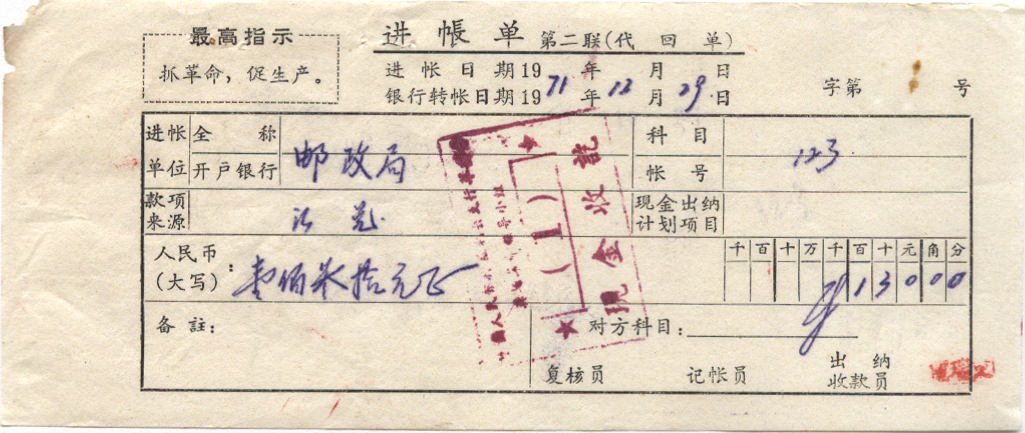 最高指示
抓革命，促生产。
进帐单 第二联(代回单)
进帐日期19 年 月 日
银行转帐日期1971年12月29日
字第 号
进帐单位 全称 科目
开户银行 邮政局 帐号 123
款项来源 汇兑 现金出纳计划项目
人民币(大写)： 壹佰叁拾元正
千百十万千百十元角分
¥13000
备註：
对方科目：
复核员 记帐员 出纳收款员
现金收讫
(1)